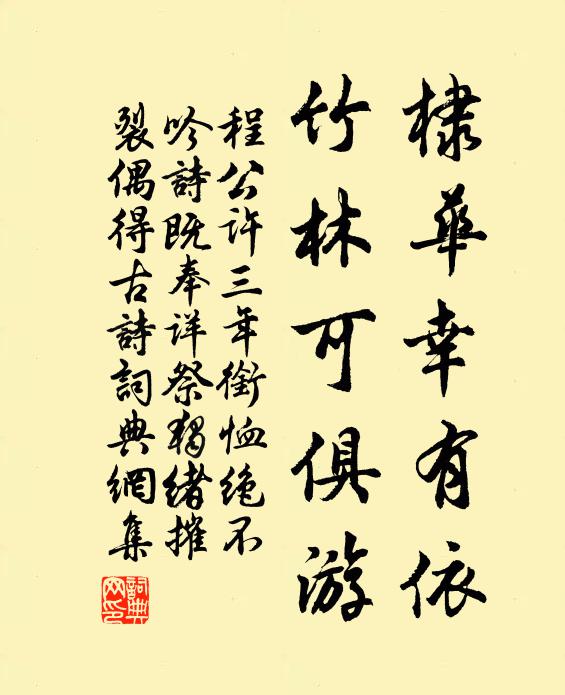 棣華幸有依
竹林可俱游
程公許三年銜恤絶不
吟詩既奉祥祭獨緒摧
裂偶得古詩詞典網集